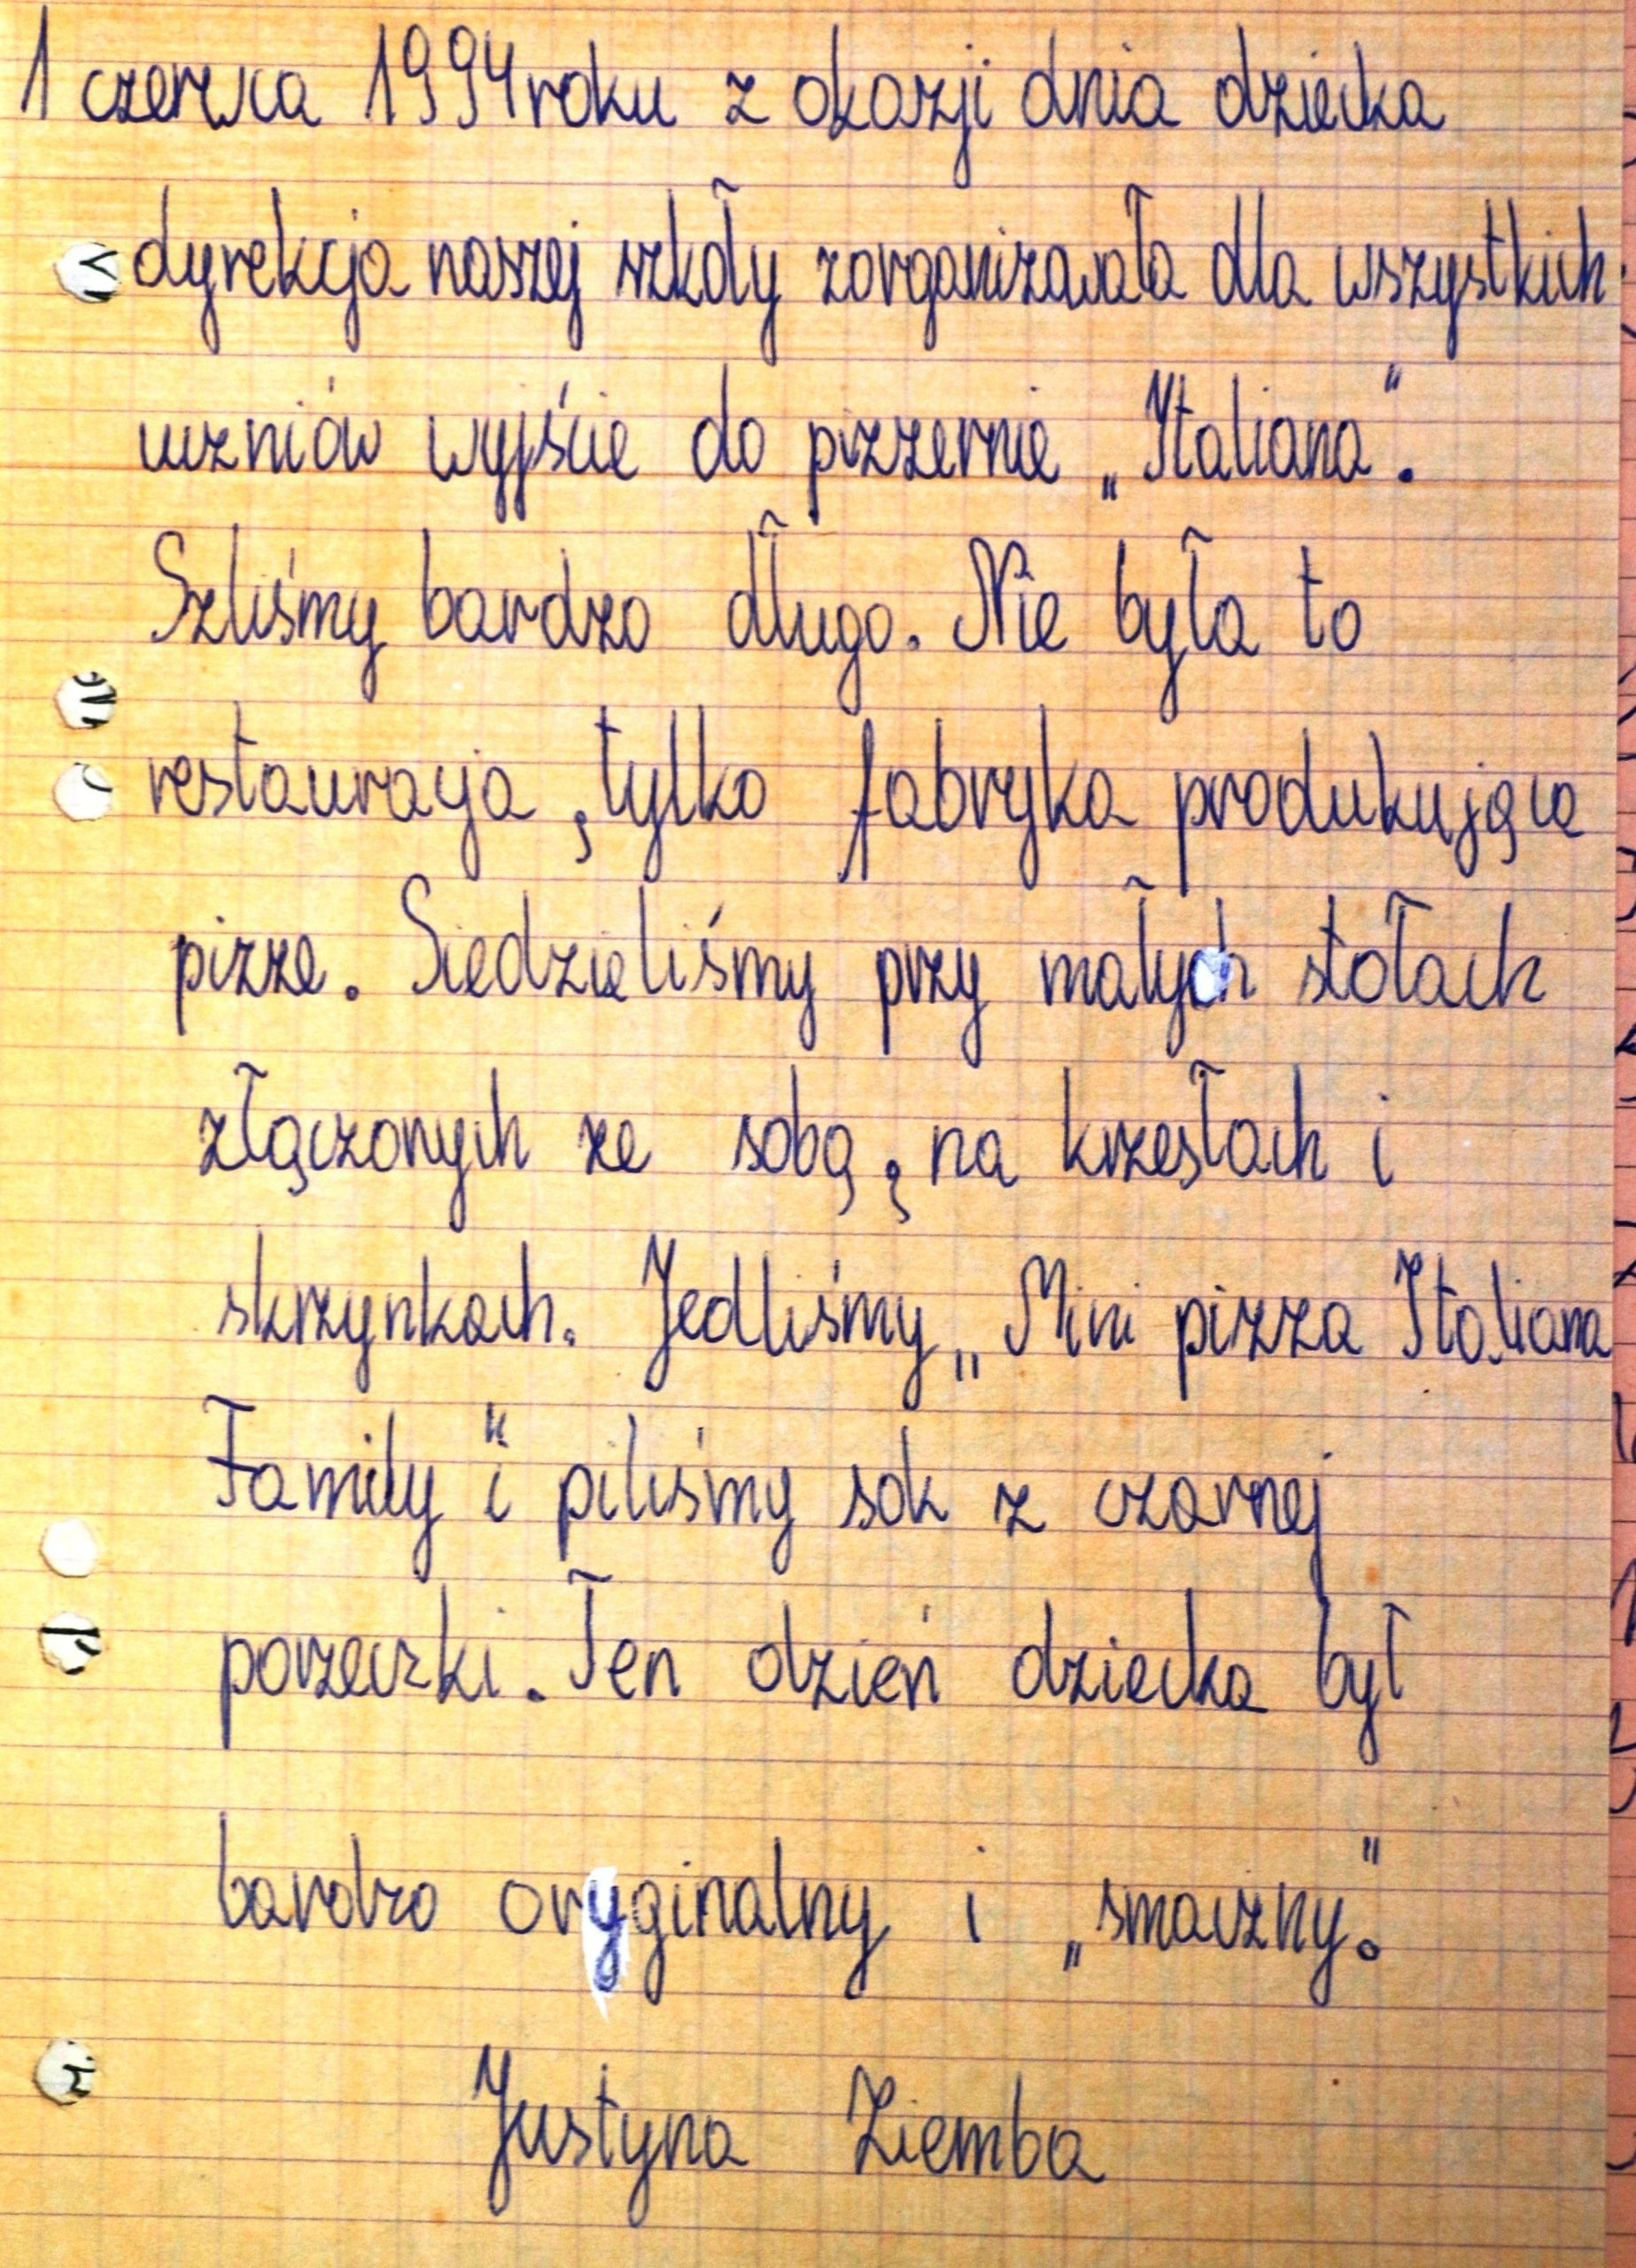 1 czerwca 1994 roku z okazji dnia dziecka
dyrekcja naszej szkoły zorganizowała dla wszystkich
uczniów wyjście do pizzernie „Italiana".
Szliśmy bardzo długo. Nie była to
restauracja, tylko fabryka produkująca
pizze. Siedzieliśmy przy małych stołach
złączonych ze sobą, na krzesłach i
skrzynkach. Jedliśmy „Mini pizza Italiana
Family" i piliśmy sok z czarnej
porzeczki. Ten dzień dziecka był
bardzo oryginalny i „smaczny".
Justyna Ziemba